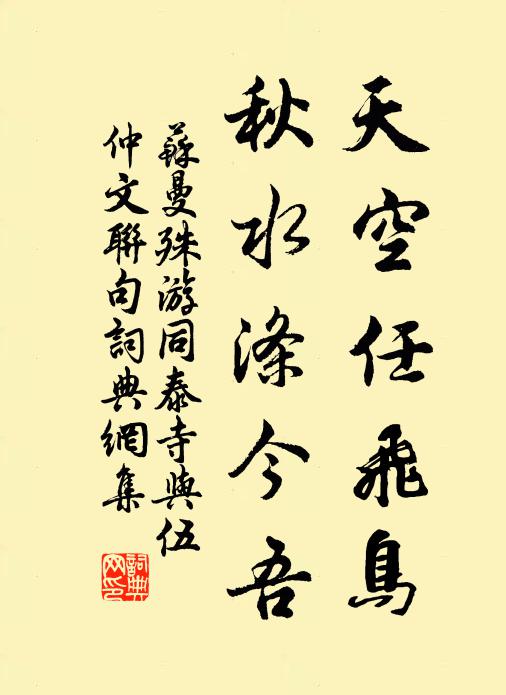 天空任飛鳥
秋水滌今吾
蘇曼殊游同泰寺與伍
仲文聯句詞典網集
詞典网印